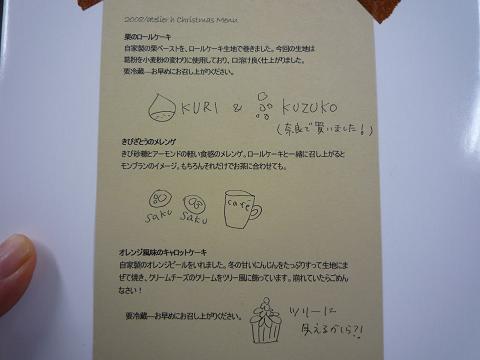 2008/atelier h Christmas Menu
栗のロールケーキ
自家製の栗ペーストを、ロールケーキ生地で巻きました。今回の生地は
葛粉を小麦粉の変わりに使用しており、口溶け良く仕上がりました。
要冷蔵―お早めにお召し上がりください。
KURI & KUZUKO
(奈良で買いました!)
きびざとうのメレンゲ
きび砂糖とアーモンドの軽い食感のメレンゲ。ロールケーキと一緒に召し上がると
モンブランのイメージ。もちろんそれだけでお茶に合わせても。
saku saku café
オレンジ風味のキャロットケーキ
自家製のオレンジピールをいれました。冬の甘いにんじんをたっぷりすって生地にま
ぜて焼き、クリームチーズのクリームをツリー風に飾っています。崩れていたらごめん
なさい!
要冷蔵―お早めにお召し上がりください。
ツリーに
見えるかしら?!